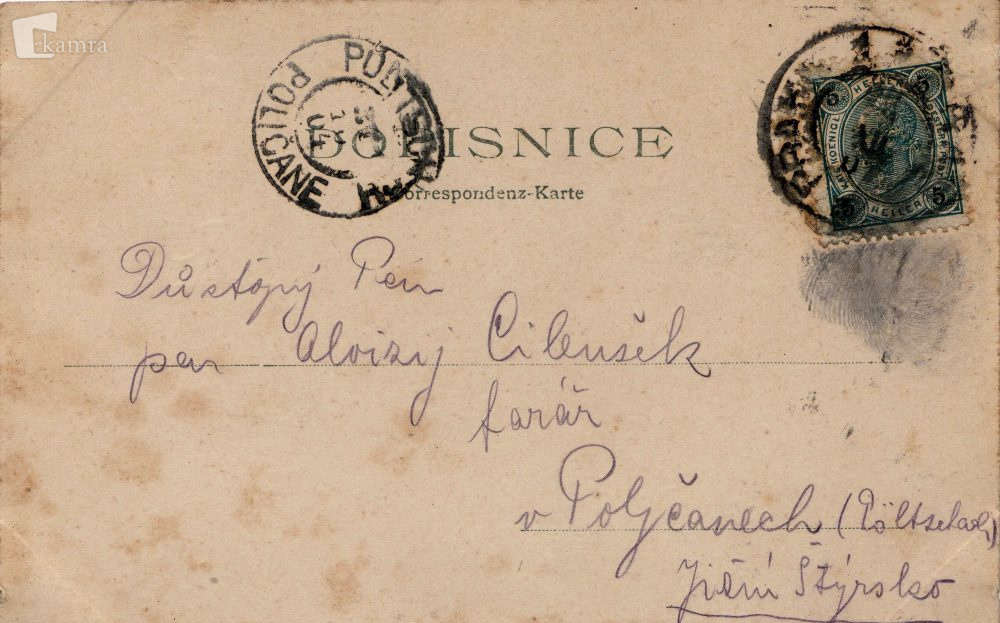 kamra
POLIČANE
DOPISNICE
Correspondenz-Karte
KAIS. KOENIGL.
HELLER
5 5
HELLER
Důstojný Pan
pan Aloizij Cilenšek
farář
v Poljčanech (Pöltschach)
Jižní Štýrsko